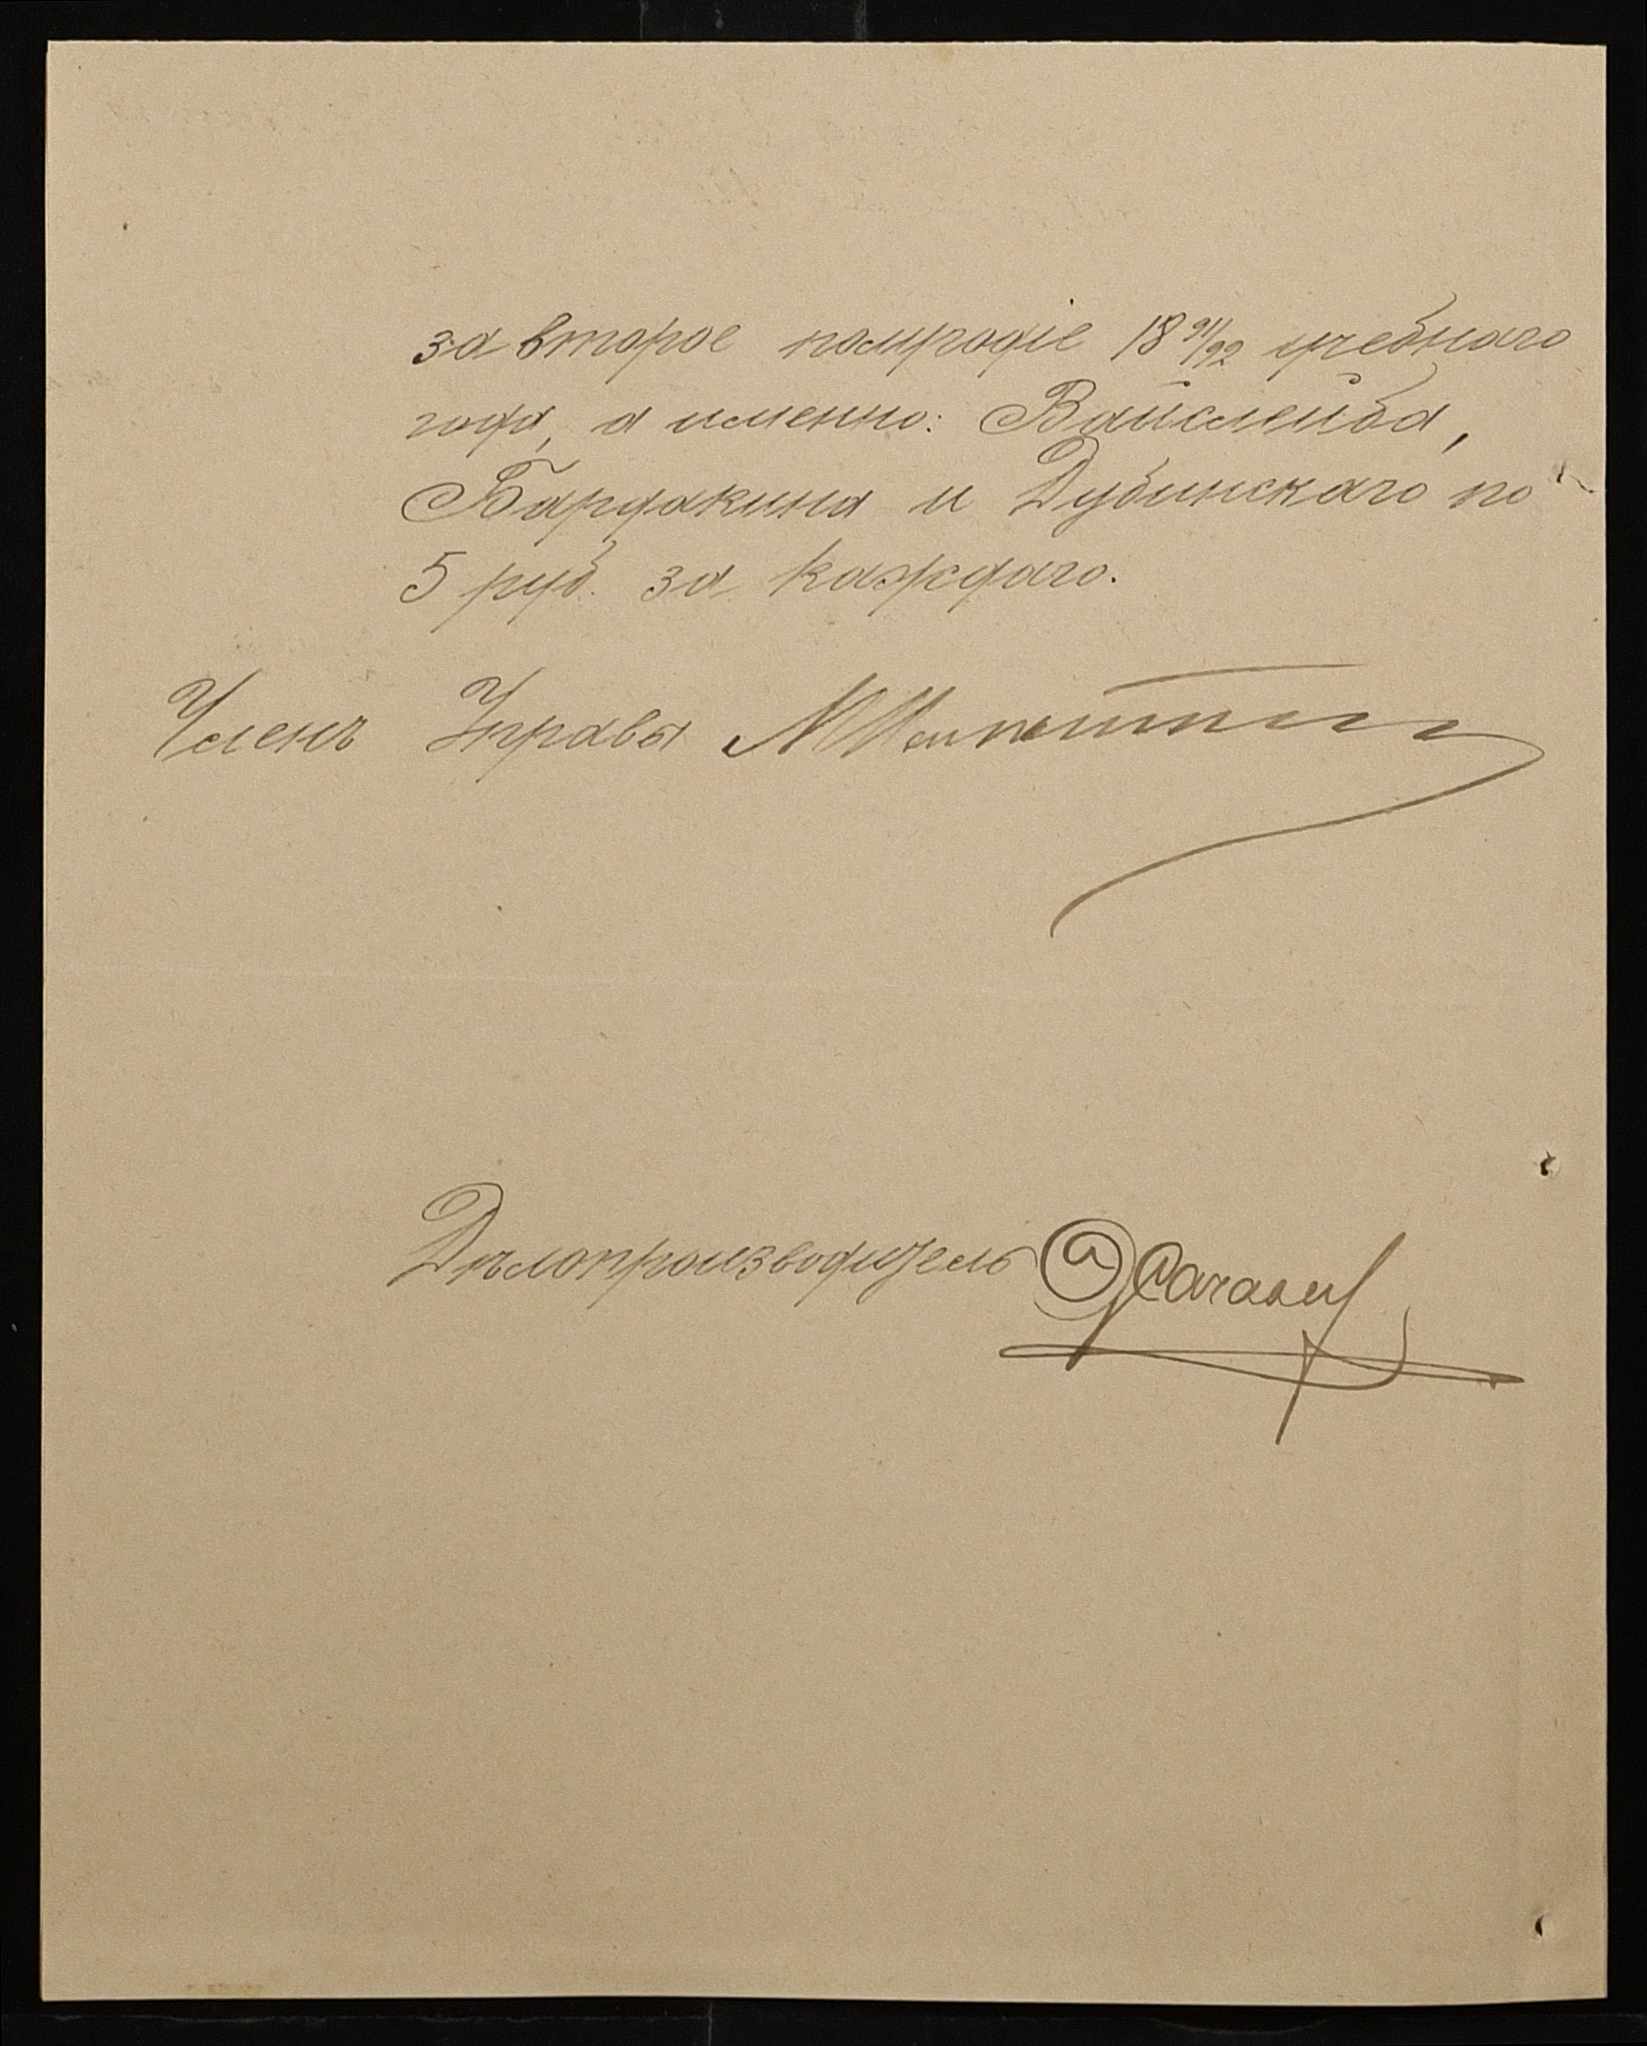 за второе полугодіе 18 91/92 учебнаго
года, а именно: Вайслейба,
Бардакина и Дубинскаго по
5 руб. за каждаго.
Членъ Управы
Дѣлопроизводитель